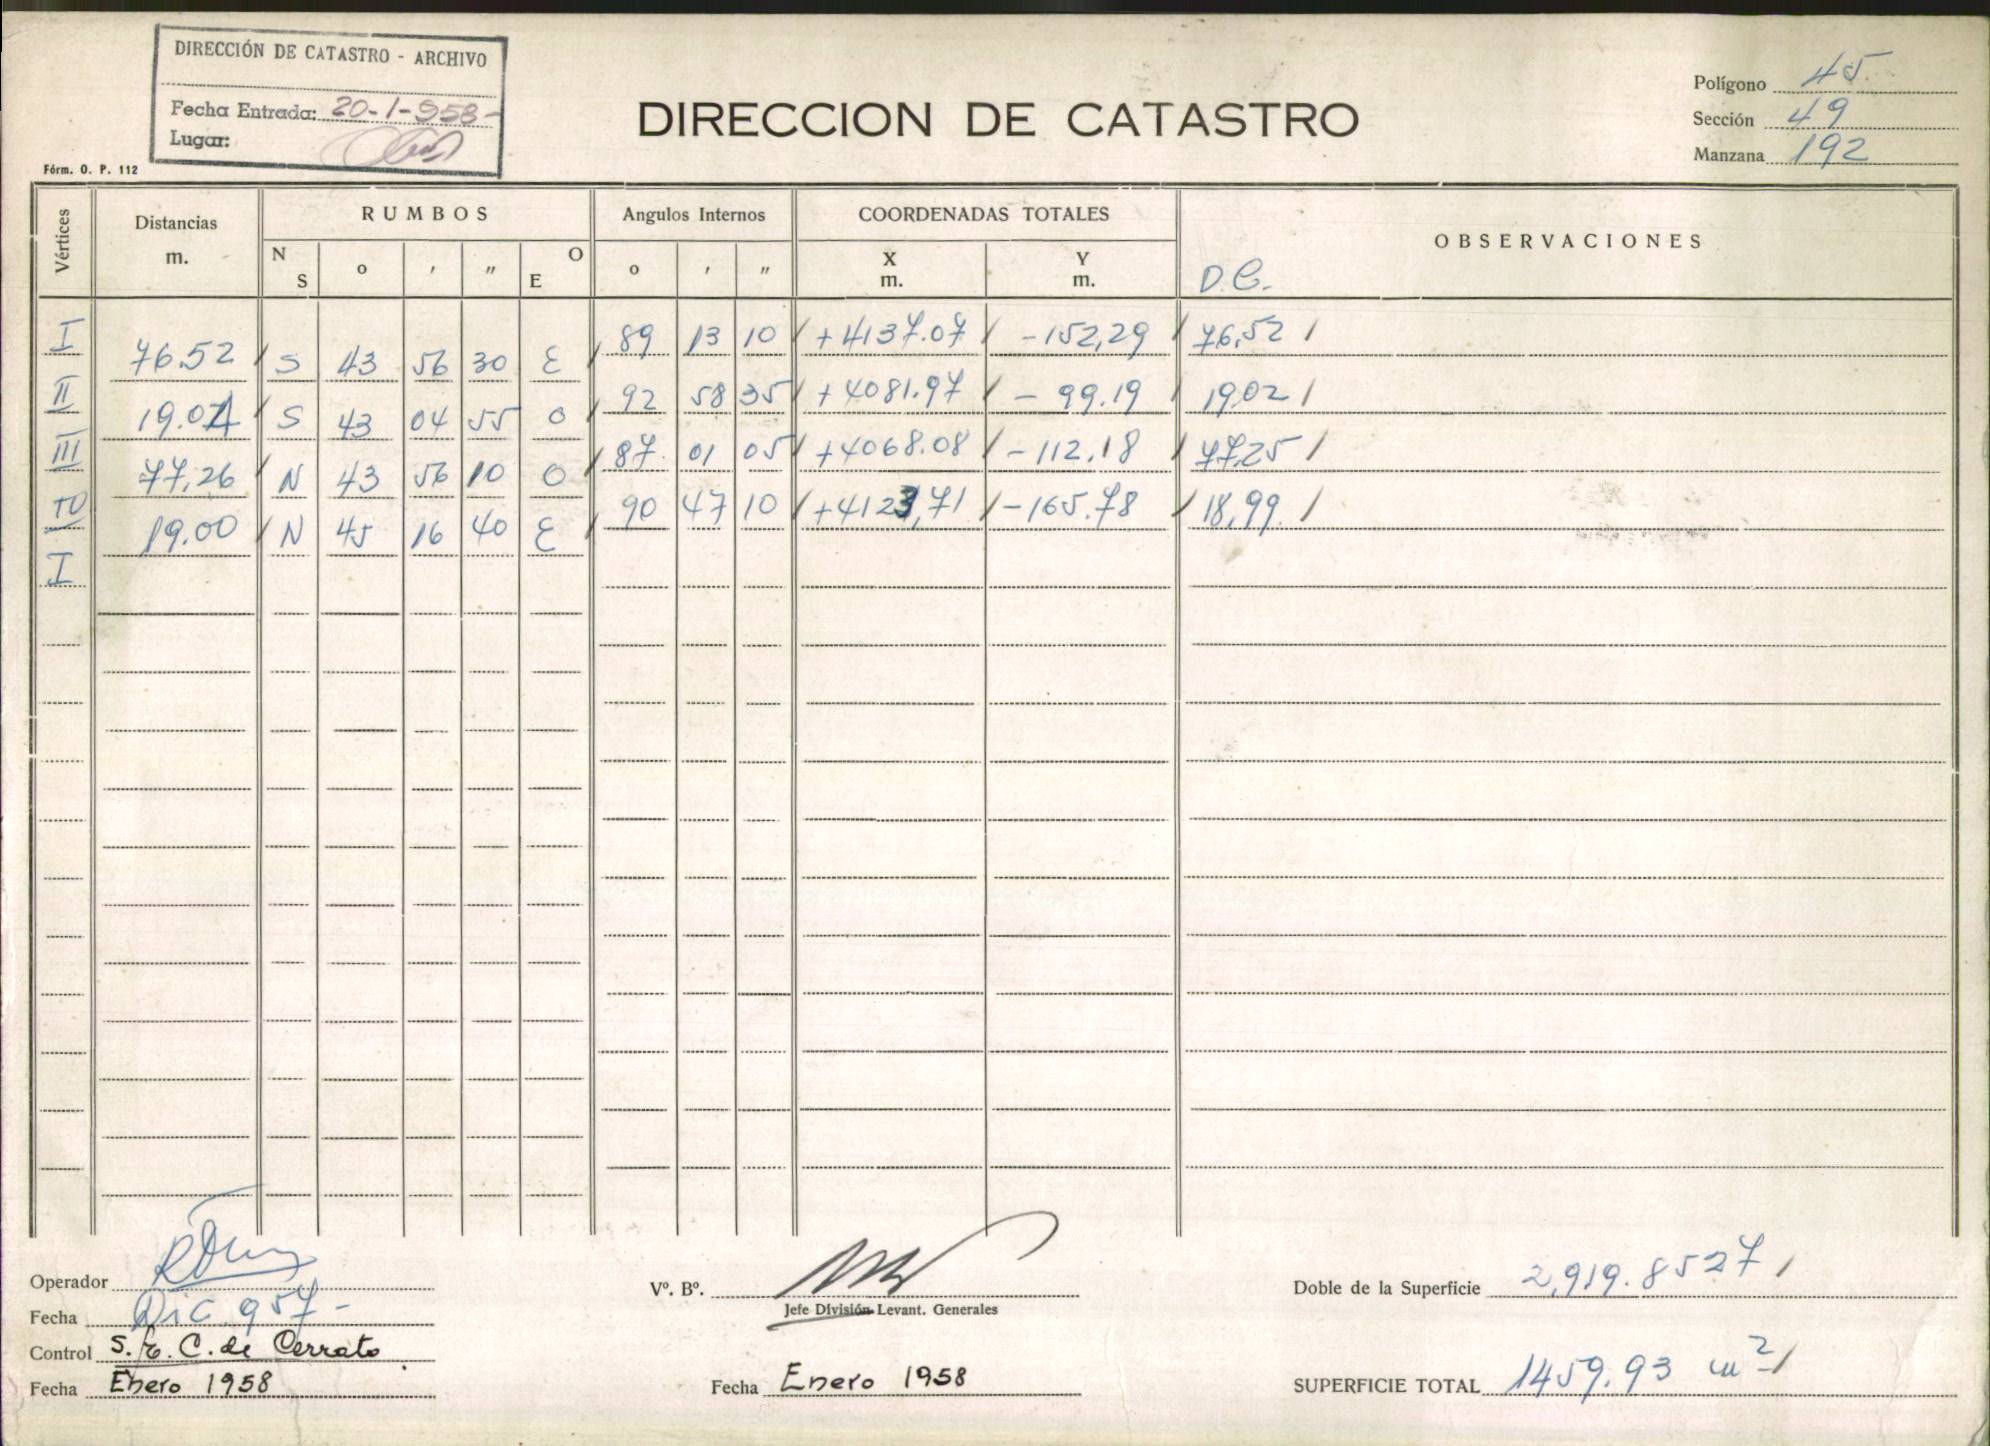 DIRECCIÓN DE CATASTRO - ARCHIVO
Fecha Entrada: 20-1-958-
Lugar:
Fórm. O. P. 112
DIRECCION DE CATASTRO
Polígono 45
Sección 49
Manzana 192
Vértices Distancias m. RUMBOS Angulos Internos COORDENADAS TOTALES OBSERVACIONES
N S o ' " O E o ' " X m. Y m. D.C.
I 89 13 10 +4137.07 -152,29 76,52
76.52 S 43 56 30 E
II 92 58 35 +4081.97 -99.19 19,02
19.01 S 43 04 55 O
III 87 01 05 +4068.08 -112.18 77,25
77,26 N 43 56 10 O
IV 90 47 10 +4123,71 -165.78 18,99
19.00 N 45 16 40 E
I
Operador
Fecha Dic 957-
Control S. E. C. de Cerrato
Fecha Enero 1958
Vº. Bº.
Jefe División Levant. Generales
Fecha Enero 1958
Doble de la Superficie 2,919.8527
SUPERFICIE TOTAL 1459.93 m²